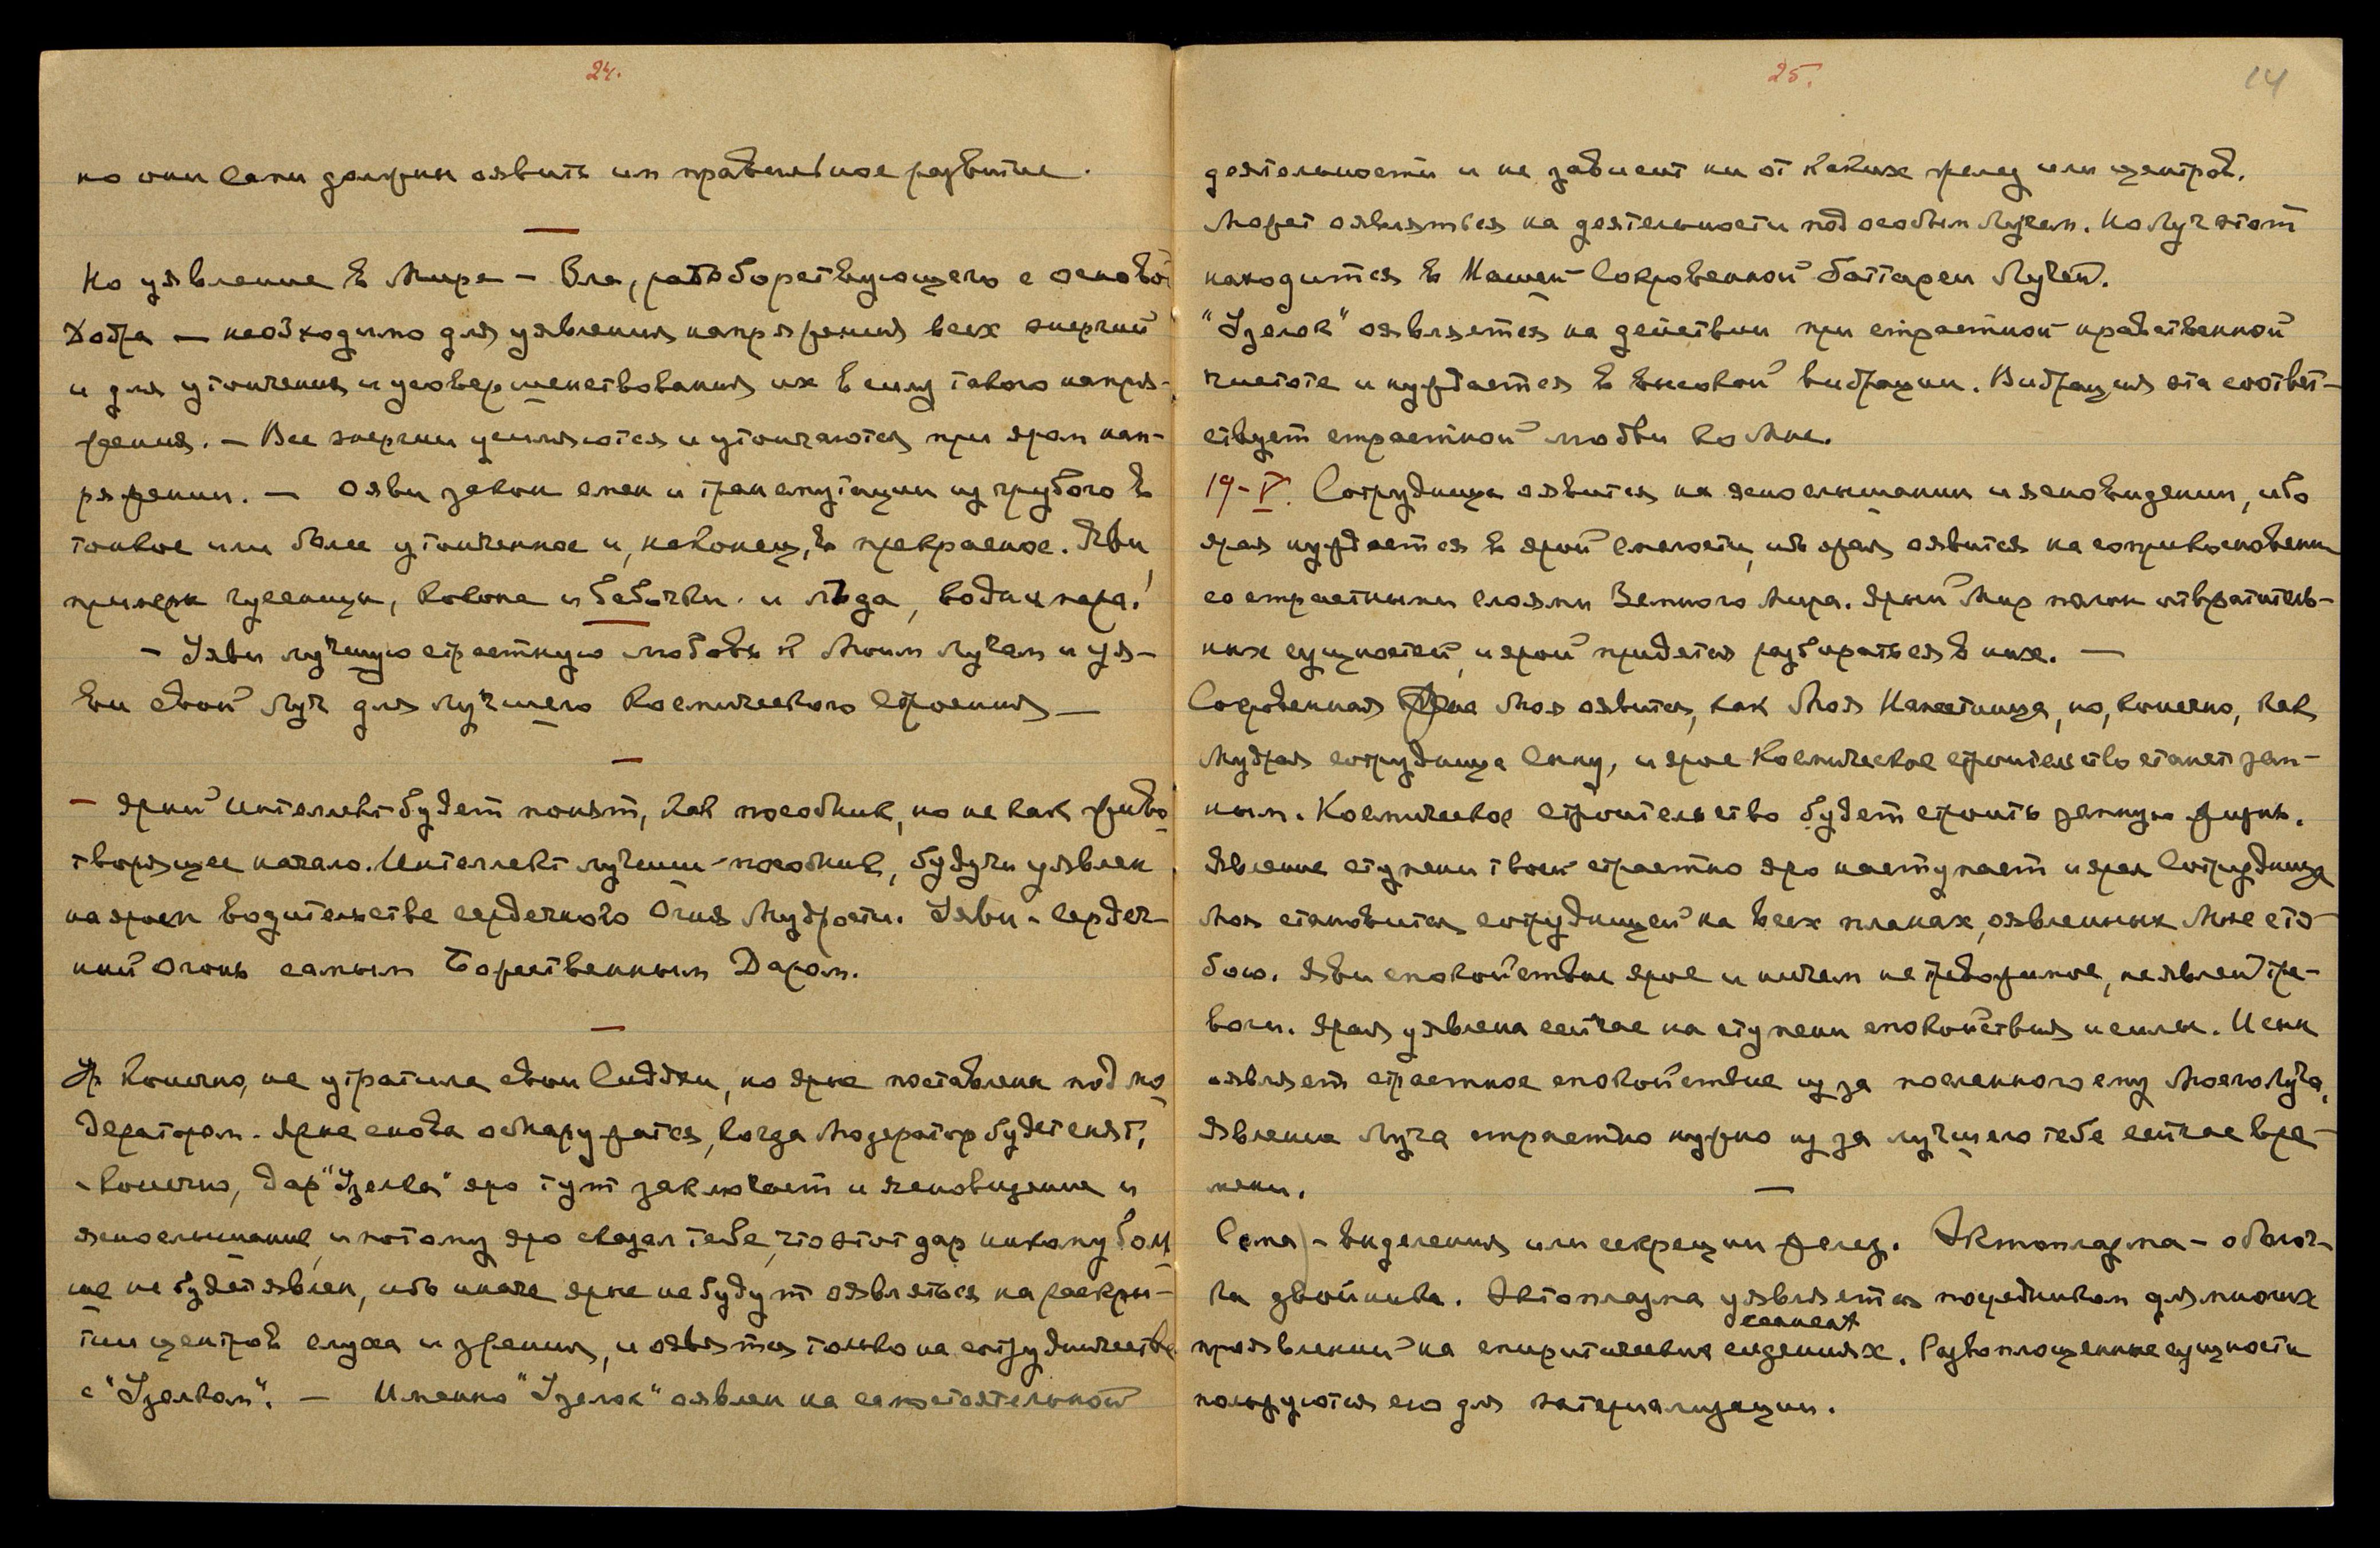 24.
но они сами должны оявить им правильное развитие.
Но уявление в Мире — Зла, ратоборствующего с основой
Добра — необходимо для уявления напряжения всех энергий
и для утончения и усовершенствования их в силу такого напря-
жения. — Все энергии усиляются и утончаются при яром нап-
ряжении. —Ояви закон смен и трансмутации из грубого в
тонкое или более утонченное и, наконец, в прекрасное. Яви
пример гусеницы, кокона и бабочки и льда, воды и пара!
— Уяви лучшую страстную любовь к Моим Лучам и уя-
ви свой Луч для лучшего Космического Строения —
— Ярый Интеллект будет понят, как пособник, но не как живо-
творящее начало. Интеллект лучший пособник, будучи уявлен
на яром водительстве сердечного Огня Мудрости. Уяви сердеч-
ный Огонь самым Божественным Даром.
Ур. конечно, не утратила свои Сиддхи, но ярые поставлены под мо-
дератором. Ярые снова обнаружатся, когда Модератор будет снят,
конечно, дар "Узелка" яро тут заключает и ясновидение и
яснослышание, и потому яро сказал тебе, что этот дар никому боль-
ше не будет явлен, ибо иначе ярые не будут оявляться на раскры-
тии центров слуха и зрения, и оявятся только на сотрудничестве
с "Узелком". — Именно "Узелок" оявлен на самостоятельной
25.
14
деятельности и не зависит ни от каких желез или центров.
Может оявляться на деятельности под особым Лучом. Но Луч этот
находится в Нашей Сокровенной Баттареи Лучей.
"Узелок" оявляется на действии при страстной нравственной
чистоте и нуждается в высокой вибрации. Вибрация эта соответ-
ствует страстной любви ко Мне.
19-V. Сотрудница оявится на яснослышании и ясновидении, ибо
ярая нуждается в ярой смелости, ибо ярая оявится на соприкосновении
со страстными слоями Земного Мира. Ярый Мир полон отвратитель-
ных сущностей, и ярой придется разбираться в них. —
Сокровенная Моя оявится, как Моя Наместница, но, конечно, как
Мудрая сотрудница Сыну, и ярое Космическое строительство станет зем-
ным. Космическое строительство будет строить земную жизнь.
Явление ступени твоей страстно яро наступает и ярая Сотрудница
Моя становится сотрудницей на всех планах, оявленных Мне сто-
бою. Яви спокойствие ярое и ничем не тревожимое, не являй тре-
воги. Ярая уявлена сейчас на ступени спокойствия и силы. И сын
оявляет страстное спокойствие из за посланного ему Моего Луча.
Явление Луча страстно нужно из за лучшего тебе сейчас вре-
мени.
Сома — выделения или секреции желез. Эктоплазма — оболоч-
ка двойника. Эктоплазма уявляется посредником для многих
сеансах
проявлений на спиритических сидениях. Развоплощенные сущности
пользуются ею для материализации.